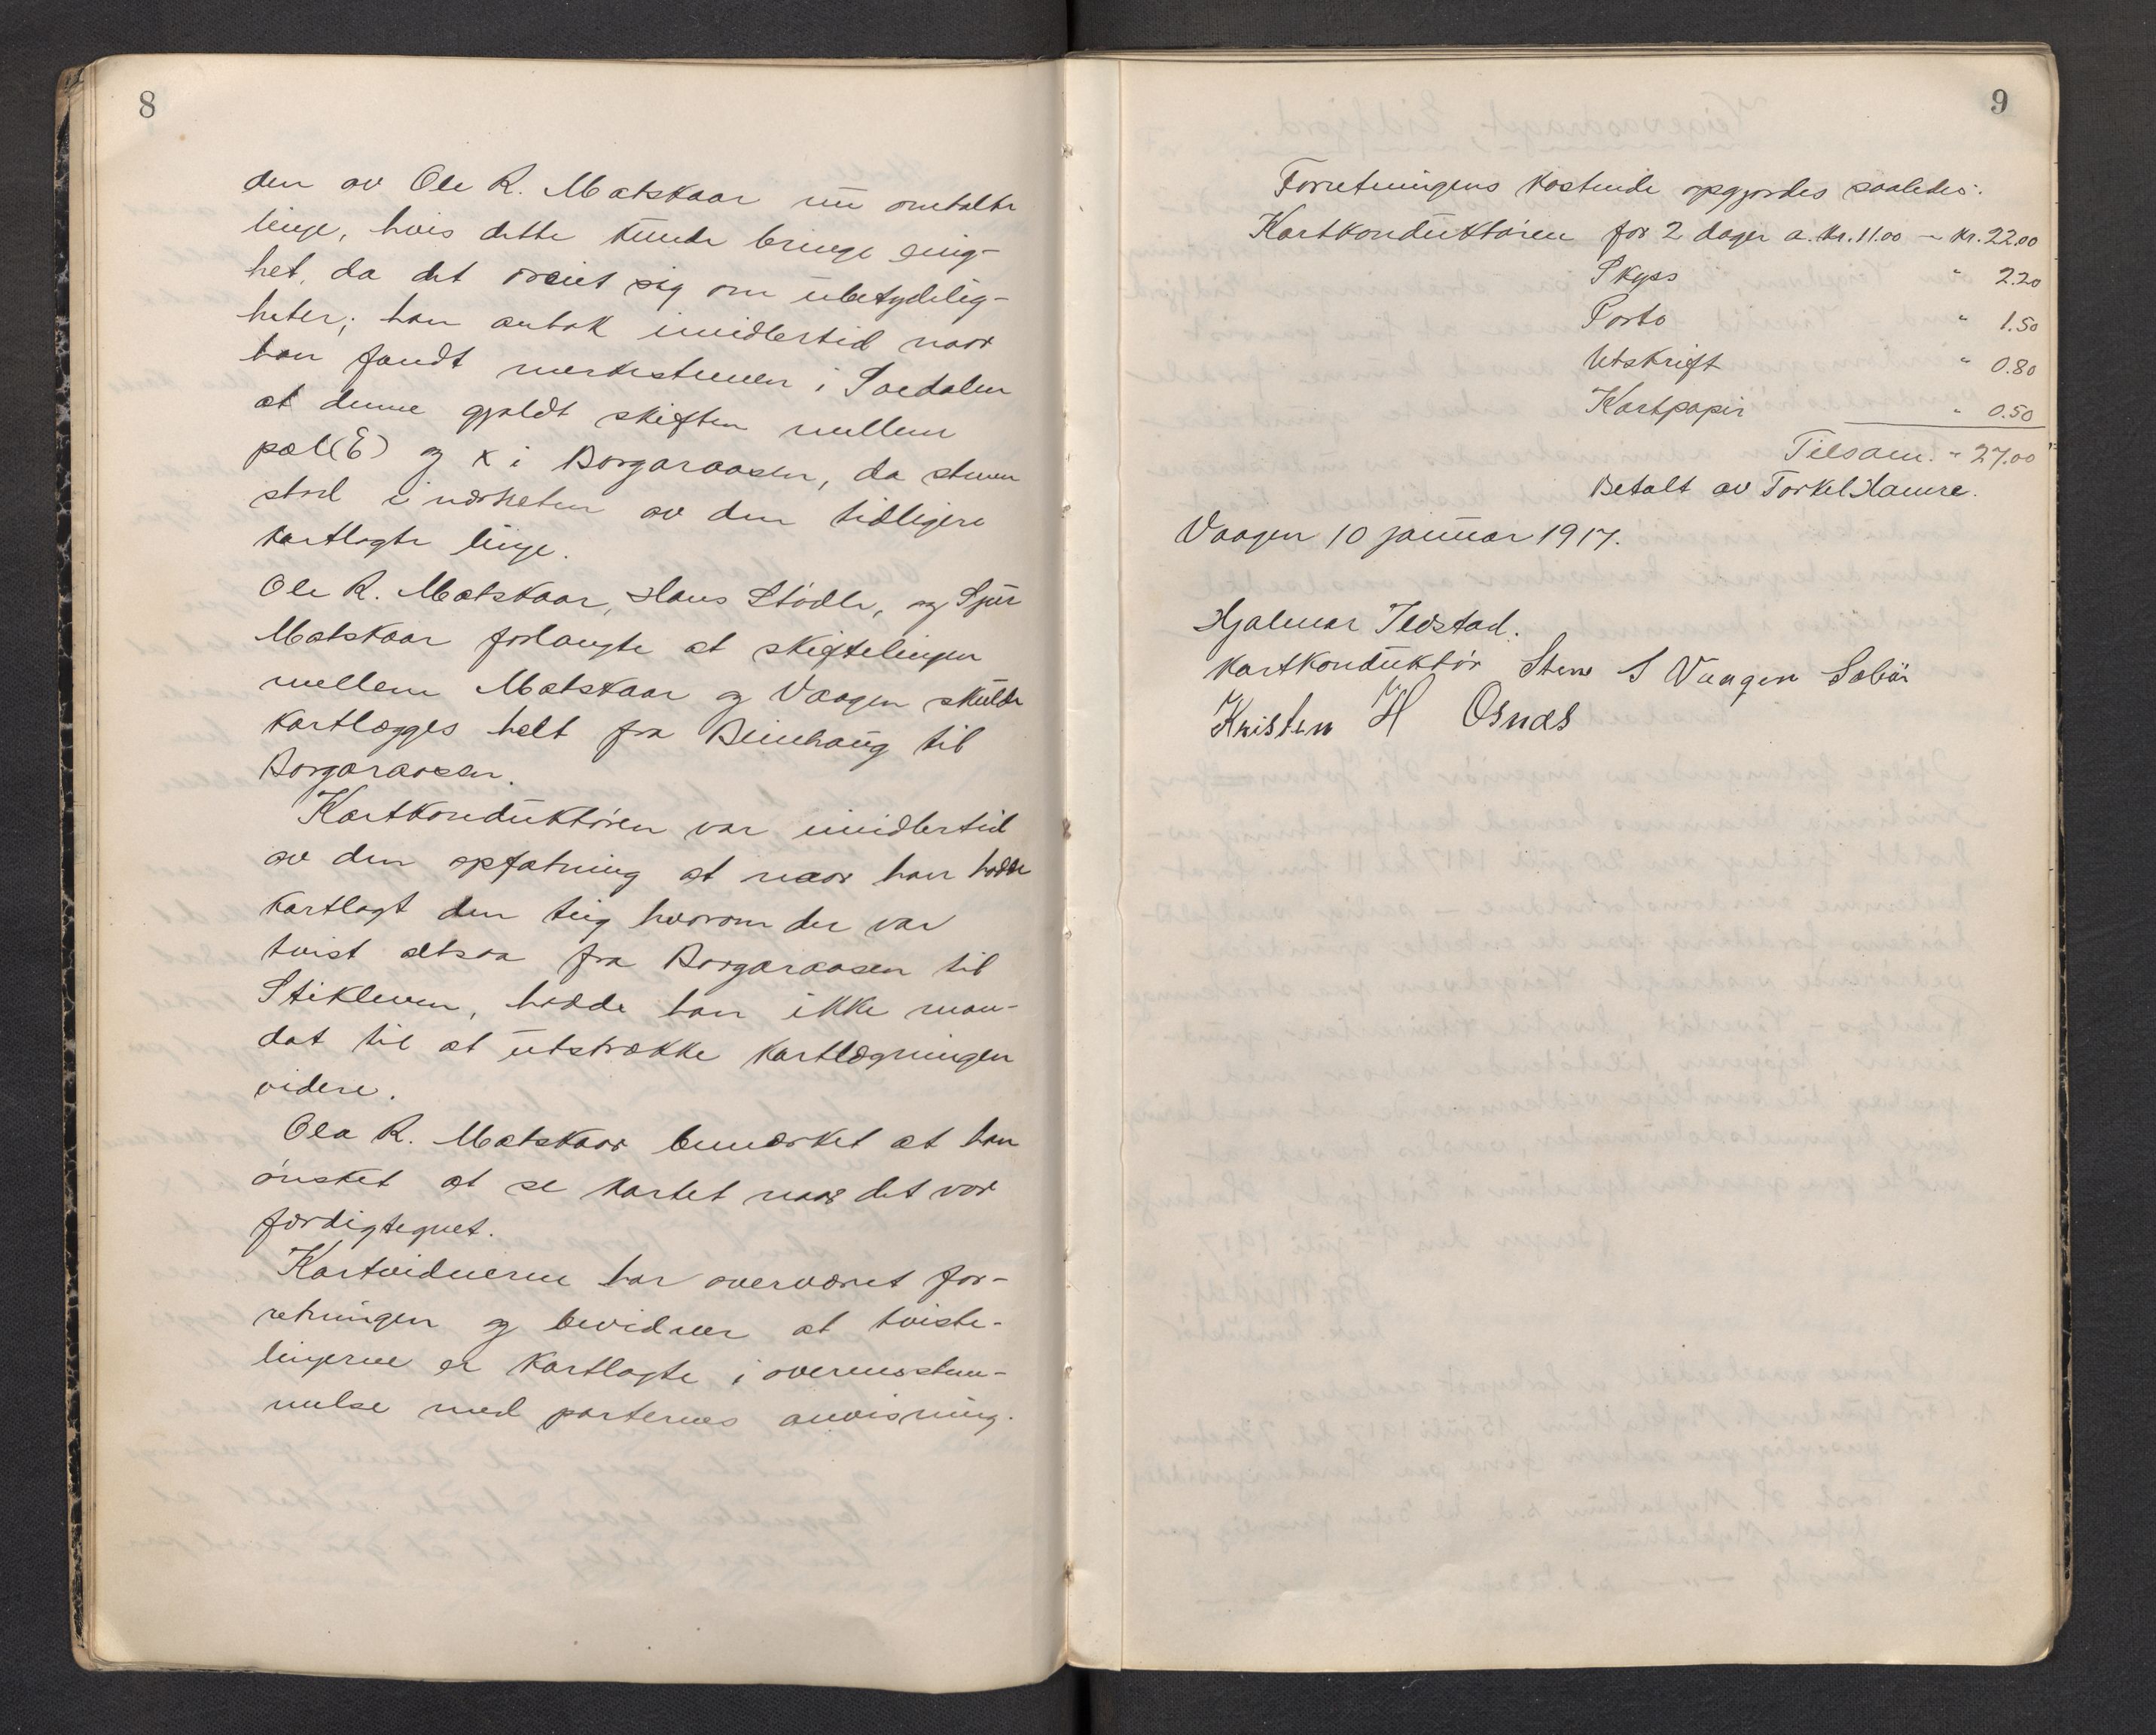 8
den av Ole R. Matskaar nu omtalte
linje, hvis dette kunde bringe enig-
het, da det dreiet sig om ubetydelig-
heter; han antok imidlertid naar
han fandt merkestenen i Sædalen
at denne gjaldt skiften mellem
pæl (E) og x i Borgaraasen, da stenen
stod i nærheten av den tidligere
kartlagte linje.
Ole R. Matskaar, Hans Stødle, og Sjur
Matskaar forlangte at skiftelinjen
mellem Matskaar og Vaagen skulde
kartlægges helt fra Beinhaug til
Borgaraasen.
Kartkonduktøren var imidlertid
av den opfatning at naar han hadde
kartlagt den teig hvorom der var
tvist altsaa fra Borgaraasen til
Stikleven, hadde han ikke man-
dat til at utstrække kartlægningen
videre.
Ola R. Matskaar bemærket at han
ønsket at se kartet naar det var
færdigtegnet.
Kartvidnerne har overværet for-
retningen og bevidner at tviste-
linjerne er kartlagte i overensstem-
melse med parternes anvisning.
9
Forretningens kostende opgjordes saaledes:
Kartkonduktøren for 2 dager a. kr. 11.00 - kr. 22.00
Skyss " 2.20
Porto " 1.50
Utskrift " 0.80
Kartpapir " 0.50
Tilsam. " 27.00
Betalt av Torkel Hamre.
Vaagen 10 januar 1917.
Hjalmar Tedstad.
kartkonduktør Sten S Vaagen
Kristen H Osnes